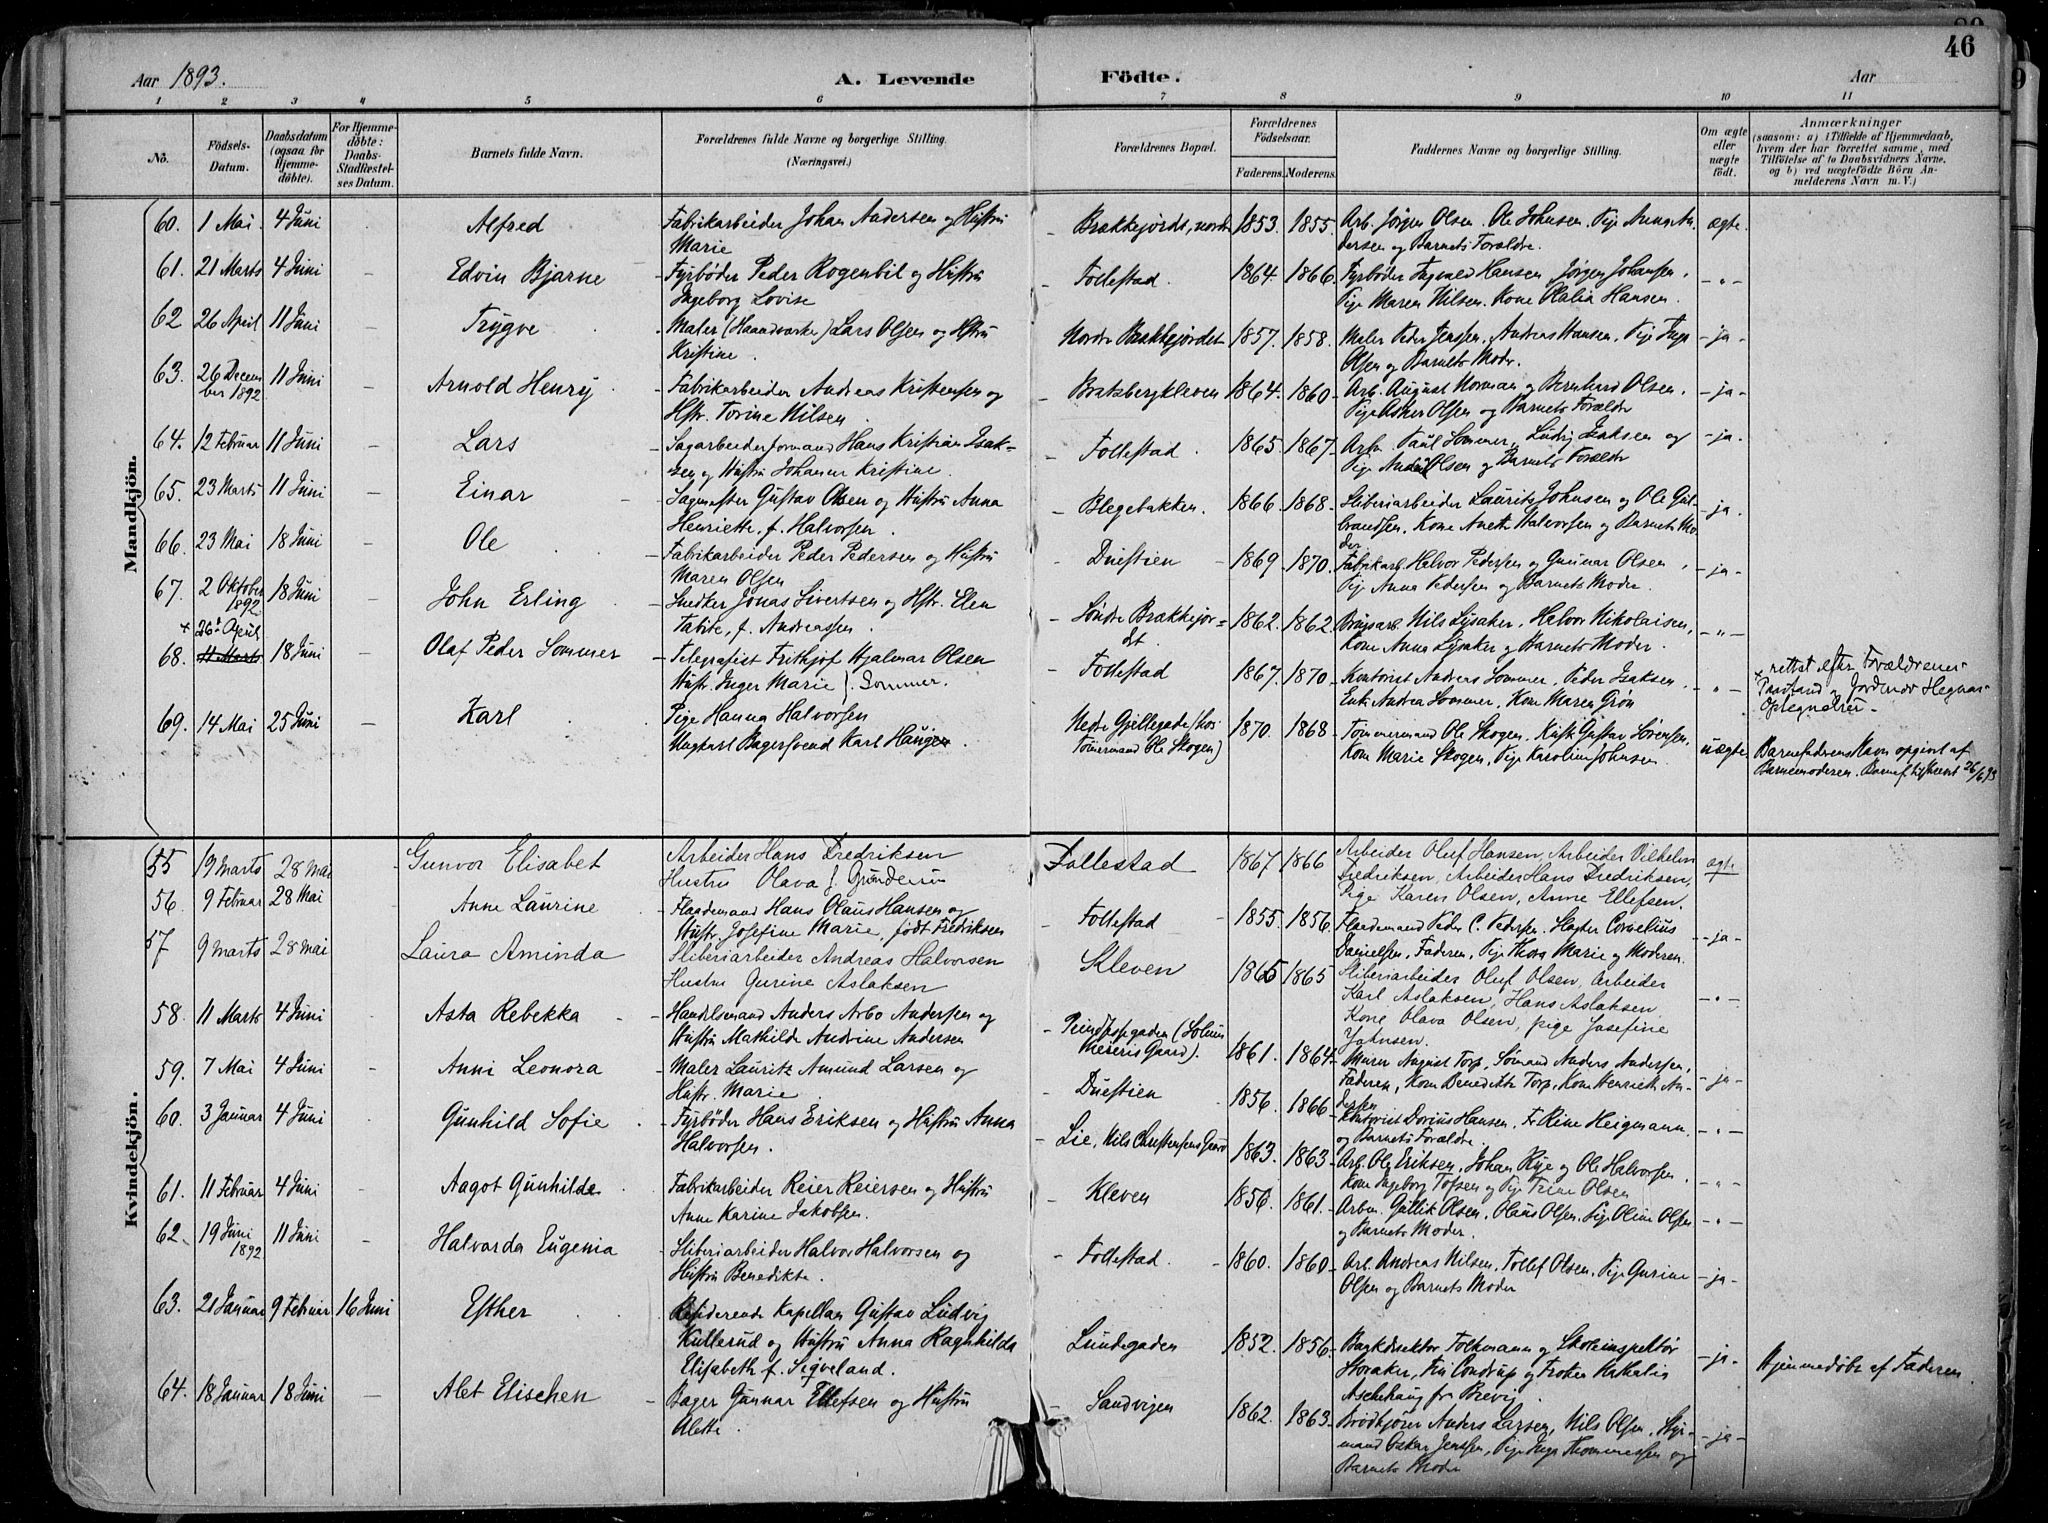 46
Aar 1893.
A. Levende Födte.
Aar
1 2 3 4 5 6 7 8 9 10 11
No.
Födsels-Datum.
Daabsdatum (ogsaa for Hjemme-döbte).
For Hjemme-döbte: Daabs-Stadfæstel-ses Datum.
Barnets fulde Navn.
Forældrenes fulde Navne og borgerlige Stilling. (Næringsvei.)
Forældrenes Bopæl.
Forældrenes Födselsaar.
Faderens. Moderens.
Faddernes Navne og borgerlige Stilling.
Om ægte eller uægte födt.
Anmærkninger
(saasom: a) i Tilfælde af Hjemmedaab, hvem der har forrettet samme, med Tilföielse af to Daabsvidners Navne, og b) ved uægtefödte Börn An-melderens Navn m. V.)
Mandkjön.
60. 1 Mai. 4 Juni - Alfred Fabrikarbeider Johan Andersen og Hustru
Marie
- Brækkejordet, nordre 1853. 1855. Arb. Jörgen Olsen. Ole Johnsen. Pige Anna An-
dersen og Barnets Forældre. ægte.
61. 21 Marts 4 Juni - Edvin Bjarne - Fyrbøder Peder Rogenbil og Hustru
Ingeborg Lovise
- Follestad. 1864. 1866. Fyrbøder Hansen, Jørgen Johansen.
Pige Maren Nilsen. Kone Olalia Hansen. - " -
62 26 April 11 Juni - Trygve - Maler (Haandværker) Lars Olsen og Hstru
Kristine.
Nordre Brækkejordet 1857. 1858. Maler Peder Jenssen. Andreas Hansen. Pige Inga
Olsen og Barnets Moder. - ja -
63. 26 Decem
ber 1892 11 Juni - Arnold Henry - Fabrikarbeider Andreas Kristensen og
Hstr. Torine Nilsen
- Bratsbergkleven 1864. 1860 - Arb. August Norman og Bernhard Olsen.
Pige Olsen og Barnets Forældre - ja -
64. 12 Februar 11 Juni - Lars - Sagarbeiderformand Hans Kristian Isak-
sen og Hustru Johanne Kristine.
- Follestad. 1865 1867 - Arb. Paul Sommer. Ludvig Isaksen og
Pige Olsen og Barnets Forældre - ja.
65. 23 Marts 11 Juni - Einar - Sagmester Gustav Olsen og Hustru Anna
Henriette, f. Halvorsen.
- Blegebakken. 1866 1868 - Sliberiarbeider Laurits Johnsen og Ole Gul-
brandsen. Kone Anette Halvorsen og Barnets Mo-
der - ja.
66. 23 Mai 18 Juni - Ole - Fabrikarbeider Peder Pedersen og Hustru
Maren Olsen
- Duestien 1869 1870. Fabrikarb. Halvor Pedersen og Gunnar Olsen.
Pige Anna Pedersen og Barnets Moder. - ja -
67. 2 Oktober
1892 18 Juni - John Erling - Snedker Jonas Sivertsen og Hstr. Elen
Tabite, f. Andreassen.
- Søndre Brækkejor-
det 1862. 1862. Nils Lysaker. Halvor Nikolaisen,
Kone Anna Lysaker og Barnets Moder. - " -
+ 26de April
68. 11 Marts 18 Juni - Olaf Peder Sommer - Telegrafist Frithjof Hjalmar Olsen
Hustr. Inger Marie f. Sommer.
- Follestad 1867. 1870 - Kontorist Andreas Sommer. Peder Isaksen.
Enk. Andrea Sommer, Kone Maren Grøn - " -
+ rettet efter Forældrenes
Paastand og Jordmor Hegnas
Optegnelser -
69. 14 Mai 25 Juni - Karl Pige Hanna Halvorsen
Ungkarl Bagersvend Karl Hauge.
Nedre Gjellegade (hos
Tömermand Ole Skogen) 1870. 1868 - Tömmermand Ole Skogen. Kusk Gustav Sørensen.
Kone Marie Skogen. Pige Karoline Johnsen. uægte
Barnefaderens Navn opgivet af
Barnemoderen. Barnef. tilskrevet 26/6 93
Kvindekjön.
55 19 Marts 28 Mai - Gunvor Elisabet Arbeider Hans Fredriksen
Hustru Olava f. Gundersen
Follestad 1867 1866 Arbeider Oluf Hansen, Arbeider Vilhelm
Fredriksen, Arbeider Hans Fredriksen,
Pige Karen Olsen, Anne Ellefsen. ægte
56. 9 Februar 28 Mai Anne Laurine - Flaademand Hans Olaus Hansen og
Hustr. Josefine Marie, født Fredriksen
- Follestad - 1855. 1856. Flaademand Peder C. Pedersen. Slagter Cornelius
Danielsen. Faderen. Pige Thora Marie og Moderen. - ja -
57 9 Marts 28 Mai Laura Aminda Sliberiarbeider Andreas Halvorsen
Hustru Gurine Aslaksen
Kleven 1865 1865 Sliberiarbeider Oluf Olsen, Arbeider
Karl Aslaksen, Hans Aslaksen.
Kone Olava Olsen, pige Josefine
Johnsen. - " -
58. 11 Marts 4 Juni - Asta Rebekka - Handelsmand Anders Arbo Andersen og
Hustru Mathilde Andrine Andersen
- (Solum
Meieris Gaard). 1861. 1864 - Murer August Torp, Sømand Anders Andersen,
Faderen, Kone Benedikte Torp, Kone Henriette An-
dersen - ja -
59. 7 Mai 4 Juni - Anni Leonora - Maler Lauritz Amund Larsen og
Hustr. Marie
- Duestien 1856. 1866 - Kontorist Dorius Hansen. Fr Rine Heigmann.
og Barnets Forældre. - " -
60. 3 Januar 4 Juni - Gunhild Sofie. - Fyrbøder Hans Eriksen og Hustru Anna
Halvorsen.
- Lie, Nils Christensens Gaard 1863. 1863 - Arb. Ole Eriksen, Johan Rije og Ole Halvorsen.
Kone Ingeborg Tofsen og Pige Trine Olsen - " -
61. 11 Februar 4 Juni - Aagot Gunhilde - Fabrikarbeider Reier Reiersen og Hustru
Anne Karine Jakobsen.
- Kleven 1856. 1861. - Arb. Gullik Olsen. Olaus Olsen. Pige Oline Olsen
og Barnets Moder. - " -
62. 19 Juni
1892 11 Juni - Halvarda Eugenia - Sliberiarbeider Halvor Halvorsen og
Hustru Benedikte.
- Follestad. - 1860. 1860 - Arb. Andreas Nilsen. Tollef Olsen. Pige Gurine
Olsen og Barnets Moder - ja -
63. 21 Januar 9 Februar 16 Juni Esther - Residerende Kapellan Gustav Ludvig
Kullerud og Hustru Anna Ragnhilda
Elisabeth f. Sigveland.
Lundegaden 1852. 1856 - Bankdirektør Folkmann og Skoleinspektør
Horaker, Fru Condrup og Frøken Nathalia
Aschehoug fra Brevig. - ja -
Hjemmedøbt af Faderen.
64. 18 Januar 18 Juni - Alet Elischen - Bager Gunnar Ellefsen og Hustru
Alette.
- Sandvigen 1862. 1863 - Brødkjører Anders Larsen, Nils Olsen. Styr-
mand Oskar Jenssen, Pige Inga Thommessen og
Barnets Moder - ja -